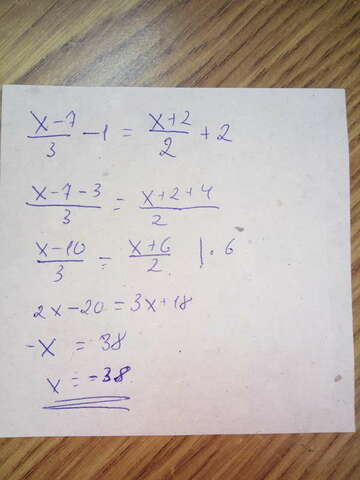 x-7/3 - 1 = x+2/2 + 2
x-7-3/3 = x+2+4/2
x-10/3 = x+6/2 | · 6
2x - 20 = 3x + 18
-x = 38
x = -38